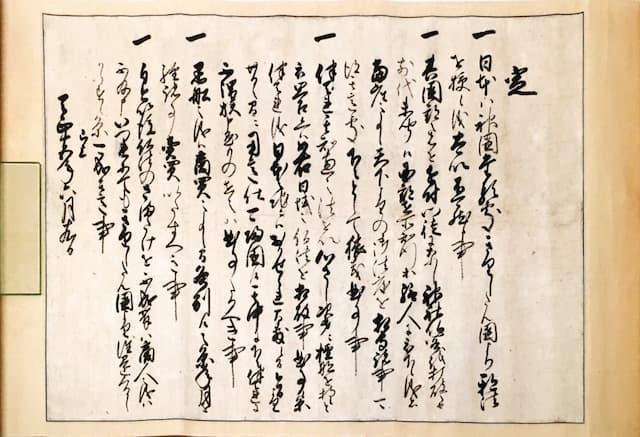 定
一 日本ハ神国たる処きりしたん国より邪法
を授候儀太以不可然候事
一 其国郡之者を近付門徒になし神社仏閣を打破之
前代未聞候国郡在所知行等給人に被下候儀者
当座之事候天下よりの御法度を相守諸事可
得其意処下々として猥義曲事事
一 伴天連其知恵之法を以心さし次第ニ檀那を持候と
被思召候へハ如右日域之仏法を相破事曲事候条
伴天連儀日本之地ニハおかせられ間敷候間今日より
廿日之間ニ用意仕可帰国候其中に下々伴天連に
不謂族申懸もの在之ハ曲事たるへき事
一 黒船之儀ハ商買之事候間各別候之条年月を
経諸事売買いたすへき事
一 自今以後仏法のさまたけを不成輩ハ商人之儀ハ
不及申いつれにてもきりしたん国より往還くるし
からす候条可成其意事
已上
天正十五年六月十九日